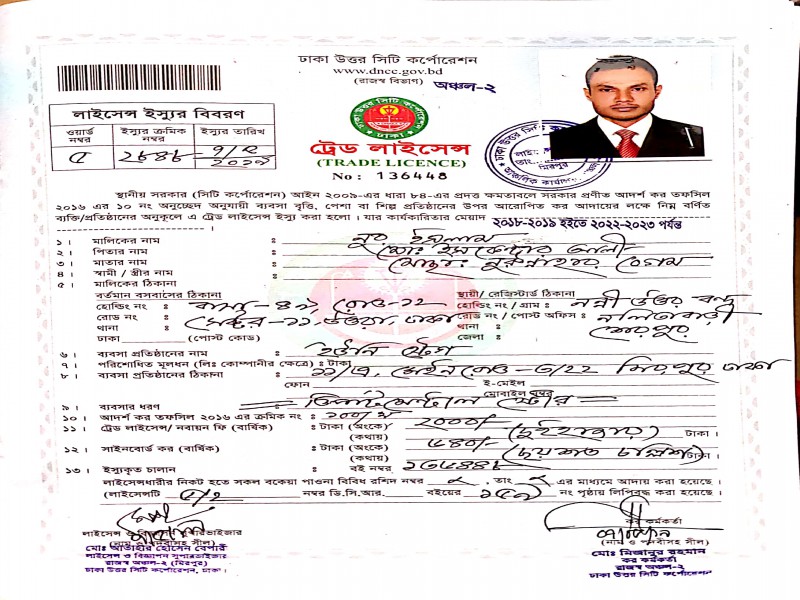 ঢাকা উত্তর সিটি কর্পোরেশন
www.dncc.gov.bd
(রাজস্ব বিভাগ) অঞ্চল-২
লাইসেন্স ইস্যুর বিবরণ
ওয়ার্ড নম্বর ইস্যুর ক্রমিক নম্বর ইস্যুর তারিখ
ট্রেড লাইসেন্স
(TRADE LICENCE)
No : 136448
স্থানীয় সরকার (সিটি কর্পোরেশন) আইন ২০০৯-এর ধারা ৮৪-এর প্রদত্ত ক্ষমতাবলে সরকার প্রণীত আদর্শ কর তফসিল
২০১৬ এর ১০ নং অনুচ্ছেদ অনুযায়ী ব্যবসা বৃত্তি, পেশা বা শিল্প প্রতিষ্ঠানের উপর আরোপিত কর আদায়ের লক্ষে নিম্ন বর্ণিত
ব্যক্তি/প্রতিষ্ঠানের অনুকূলে এ ট্রেড লাইসেন্স ইস্যু করা হলো। যার কার্যকারিতার মেয়াদ ২০১৮-২০১৯ হইতে ২০২২-২০২৩ পর্যন্ত
১। মালিকের নাম : নুর ইসলাম
২। পিতার নাম : মোঃ আলী
৩। মাতার নাম : মোছাঃ বেগম
৪। স্বামী / স্ত্রীর নাম :
৫। মালিকের ঠিকানা
বর্তমান বসবাসের ঠিকানা স্থায়ী/ রেজিস্টার্ড ঠিকানা
হোল্ডিং নং : বাসা-৪৯, রোড-১২ হোল্ডিং নং / গ্রাম : নন্নী উত্তর বন্দ
রোড নং : সেক্টর-১১, উত্তরা, ঢাকা রোড নং / পোস্ট অফিস : নালিতাবাড়ী
থানা থানা : শেরপুর
ঢাকা (পোস্ট কোড) জেলা :
৬। ব্যবসা প্রতিষ্ঠানের নাম :
৭। পরিশোধিত মূলধন (লিঃ কোম্পানীর ক্ষেত্রে) : টাকা
৮। ব্যবসা প্রতিষ্ঠানের ঠিকানা : মেইন রোড-৩/২২ মিরপুর ঢাকা
ফোন ই-মেইল
মোবাইল নম্বর
৯। ব্যবসার ধরণ : ডিপার্টমেন্টাল স্টোর
১০। আদর্শ কর তফসিল ২০১৬ এর ক্রমিক নং :
১১। ট্রেড লাইসেন্স/ নবায়ন ফি (বার্ষিক) : টাকা (অংকে) ২০০০/-
(কথায়) (দুইহাজার) টাকা।
১২। সাইনবোর্ড কর (বার্ষিক) : টাকা (অংকে) ৬৪০/-
(কথায়) (ছয়শত চল্লিশ) টাকা।
১৩। ইস্যুকৃত চালান : বই নম্বর
লাইসেন্সধারীর নিকট হতে সকল বকেয়া পাওনা বিবিধ রশিদ নম্বর তাং এর মাধ্যমে আদায় করা হয়েছে।
(লাইসেন্সটি নম্বর ডি.সি.আর. বইয়ের নং পৃষ্ঠায় লিপিবদ্ধ করা হয়েছে।
লাইসেন্স ও বিজ্ঞাপন সুপারভাইজার
(নাম ও পদবীসহ সীল)
মোঃ আতাহার হোসেন বেপারী
লাইসেন্স ও বিজ্ঞাপন সুপারভাইজার
রাজস্ব অঞ্চল-২ (মিরপুর)
ঢাকা উত্তর সিটি কর্পোরেশন, ঢাকা।
কর কর্মকর্তা
(নাম ও পদবীসহ সীল)
মোঃ মিজানুর রহমান
কর কর্মকর্তা
রাজস্ব অঞ্চল-২
ঢাকা উত্তর সিটি কর্পোরেশন